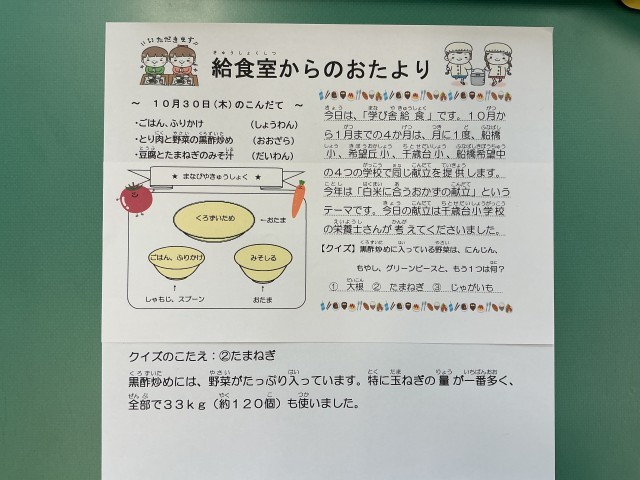 いただきます
給食室からのおたより
～ 10月30日(木)のこんだて ～
・ごはん、ふりかけ (しょうわん)
・とり肉と野菜の黒酢炒め (おおざら)
・豆腐とたまねぎのみそ汁 (だいわん)
★ まなびやきゅうしょく ★
くろずいため
←おたま
ごはん、ふりかけ
みそしる
しゃもじ、スプーン
おたま
今日は、「学び舎給食」です。10月か
ら1月までの4か月は、月に1度、船橋
小、希望丘小、千歳台小、船橋希望中
の4つの学校で同じ献立を提供します。
今年は「白米に合うおかずの献立」という
テーマです。今日の献立は千歳台小学校
の栄養士さんが考えてくださいました。
【クイズ】黒酢炒めに入っている野菜は、にんじん、
もやし、グリーンピースと、もう1つは何?
① 大根 ② たまねぎ ③ じゃがいも
クイズのこたえ:②たまねぎ
黒酢炒めには、野菜がたっぷり入っています。特に玉ねぎの量が一番多く、
全部で33kg(約120個)も使いました。